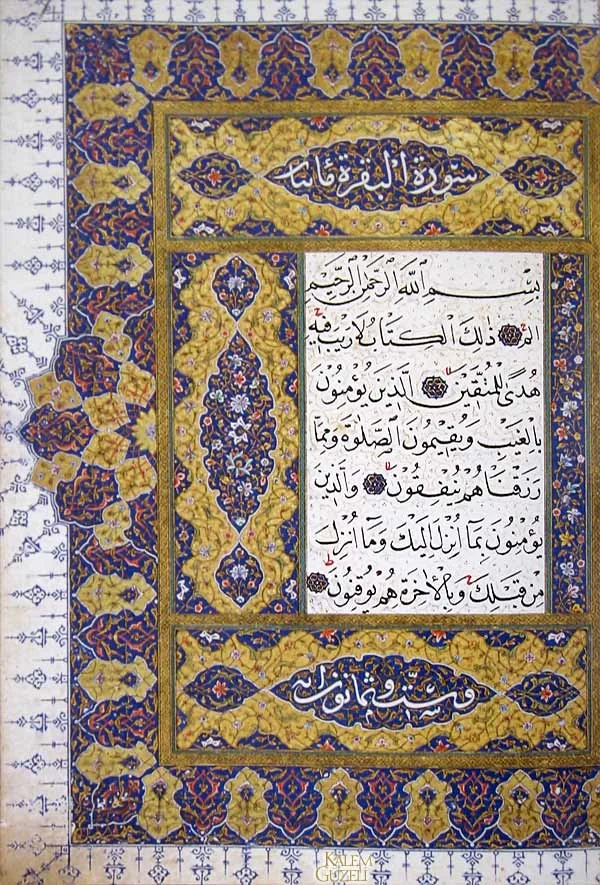 سورة البقرة مائتان
بِسْمِ اللهِ الرَّحْمٰنِ الرَّحِيمِ
الم ذٰلِكَ الْكِتَابُ لَا رَيْبَ فِيهِ
هُدًى لِلْمُتَّقِينَ الَّذِينَ يُؤْمِنُونَ
بِالْغَيْبِ وَيُقِيمُونَ الصَّلٰوةَ وَمِمَّا
رَزَقْنَاهُمْ يُنْفِقُونَ وَالَّذِينَ
يُؤْمِنُونَ بِمَا أُنْزِلَ إِلَيْكَ وَمَا أُنْزِلَ
مِنْ قَبْلِكَ وَبِالْاٰخِرَةِ هُمْ يُوقِنُونَ
وست وثمانون اية
KALEM
GÜZELİ